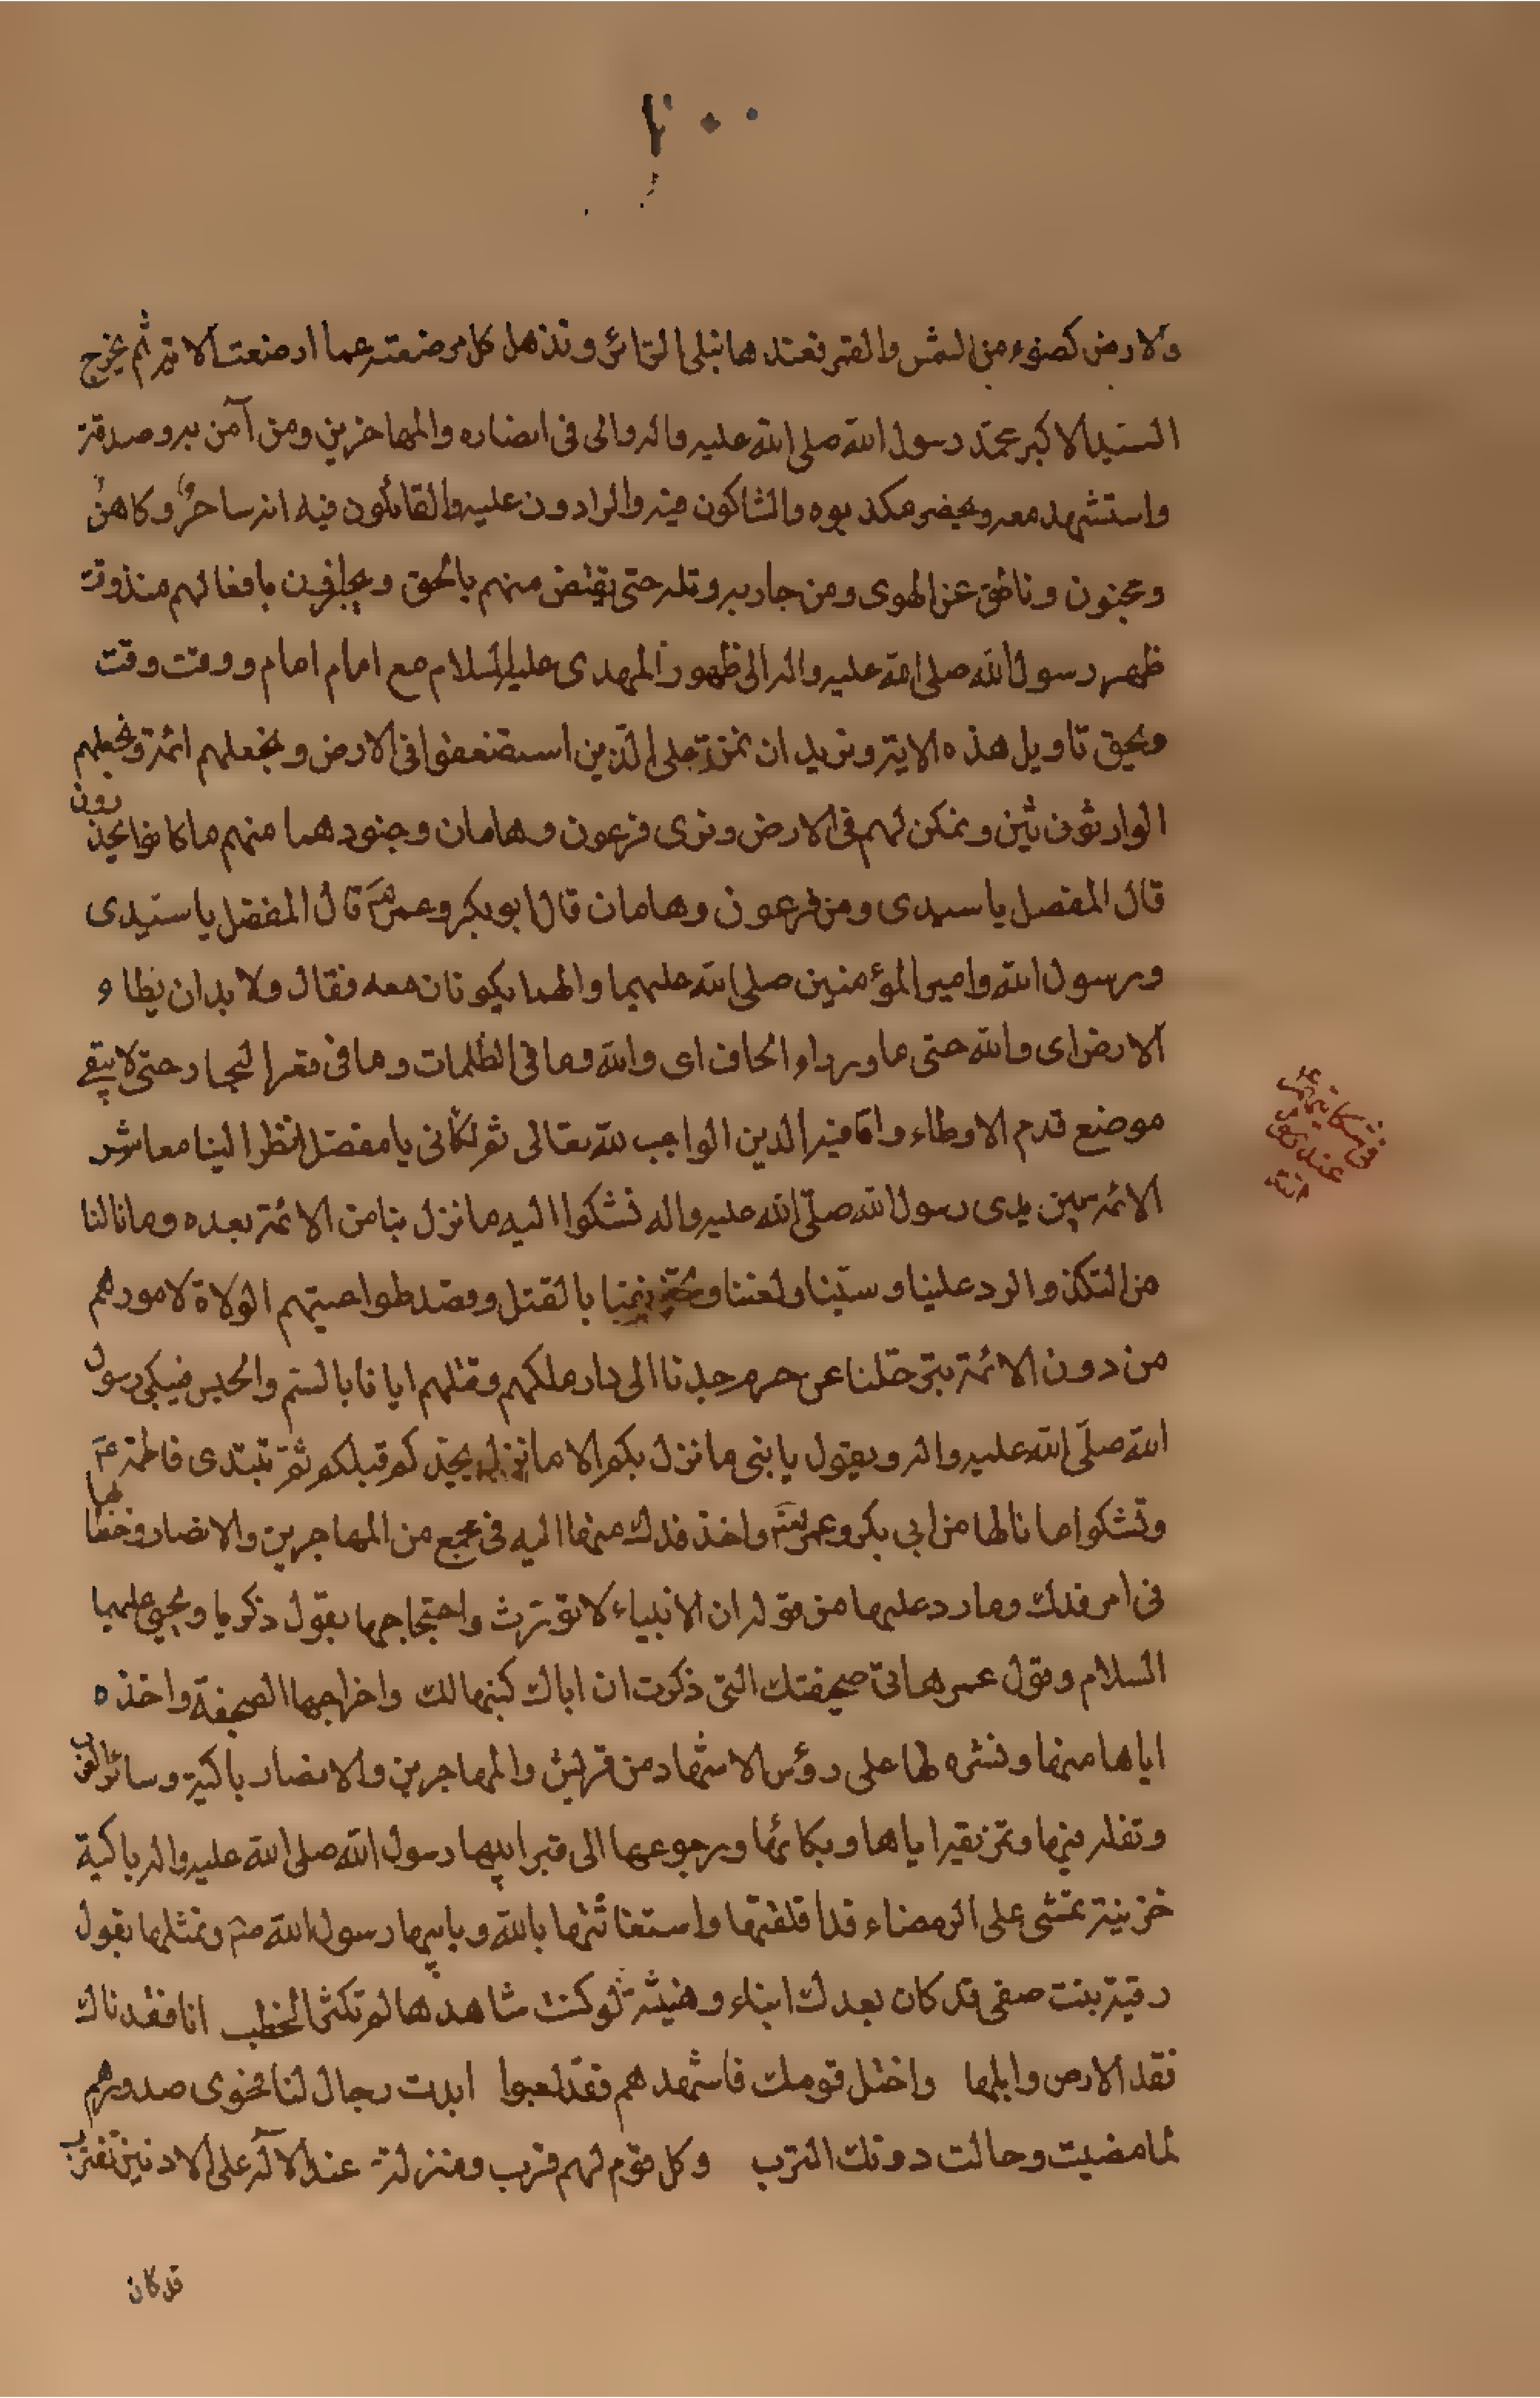 ٢٠٠
والارض كضوء من الشمس والقمر فعندها تبلى السرائر وتذهل كل مرضعة عما ارضعت الاية ثم يخرج
السيد الاكبر محمد رسول الله صلى الله عليه واله والى فى انصاره والمهاجرين ومن آمن به وصدقه
واستشهد معه ويحضر مكذبوه والشاكون فيه والرادون عليه والقائلون فيه انه ساحر وكاهن
ومجنون وناطق عن الهوى ومن حاربه وقاتله حتى يقتص منهم بالحق ويجازون بافعالهم منذ وقت
ظهر رسول الله صلى الله عليه واله الى ظهور المهدى عليه السلام مع امام امام ووقت وقت
ويحق تاويل هذه الاية ونريد ان نمن على الذين استضعفوا فى الارض ونجعلهم ائمة ونجعلهم
الوارثين ونمكن لهم فى الارض ونرى فرعون وهامان وجنودهما منهم ما كانوا يحذرون
قال المفضل يا سيدى ومن فرعون وهامان قال ابو بكر وعمر قال المفضل يا سيدى
ورسول الله وامير المؤمنين صلى الله عليهما والهما يكونان معه فقال ولا بد ان يطاء
الارض اى والله حتى ما وراء الخاف اى والله وما فى الظلمات وما فى قعر البحار حتى لا يبقى
موضع قدم الا وطاء واقاما فيه الدين الواجب لله تعالى ثم لكانى يا مفضل انظر الينا معاشر
الائمة بين يدى رسول الله صلى الله عليه واله نشكوا اليه ما نزل بنا من الائمة بعده وما نالنا
من التكذ والرد علينا وسبنا ولعننا بالقتل وقصد طواغيتهم الولاة لامورهم
من دون الائمة بترحلنا عن حرم جدنا الى دار ملكهم وقتلهم ايانا بالسم والحبس فيبكى رسول
الله صلى الله عليه واله ويقول يا بنى ما نزل بكم الا ما نزل بجدكم قبلكم ثم تبتدى فاطمة ع
وتشكوا ما نالها من ابى بكر وعمر واخذ فدك منها اليه فى مجمع من المهاجرين والانصار وخطابها
فى امر فدك وما رد عليها من قوله ان الانبياء لا تورث واحتجاجها بقول ذكريا ويحيى عليهما
السلام وقول عمر هاتى صحيفتك التى ذكرت ان اباك كتبها لك واخراجها الصحيفة واخذه
اياها منها ونشره لها على رؤس الاشهاد من قريش والمهاجرين والانصار باكية وسائر العرب
وتفله فيها وتمزيقه اياها وبكائها ورجوعها الى قبر ابيها رسول الله صلى الله عليه واله باكية
حزينة تمشى على الرمضاء قد اقلقتها واستغاثتها بالله وبابيها رسول الله ص وتمثلها بقول
رقية بنت صفى قد كان بعدك انباء وهنبثة لو كنت شاهدها لم تكثر الخطب انا فقدناك
فقد الارض وابلها واختل قومك فاشهدهم فقد لعبوا ابدت رجال لنا فحوى صدورهم
لما مضيت وحالت دونك الترب وكل قوم لهم قرب ومنزلة عند الاله على الادنين تقترب
قد كان